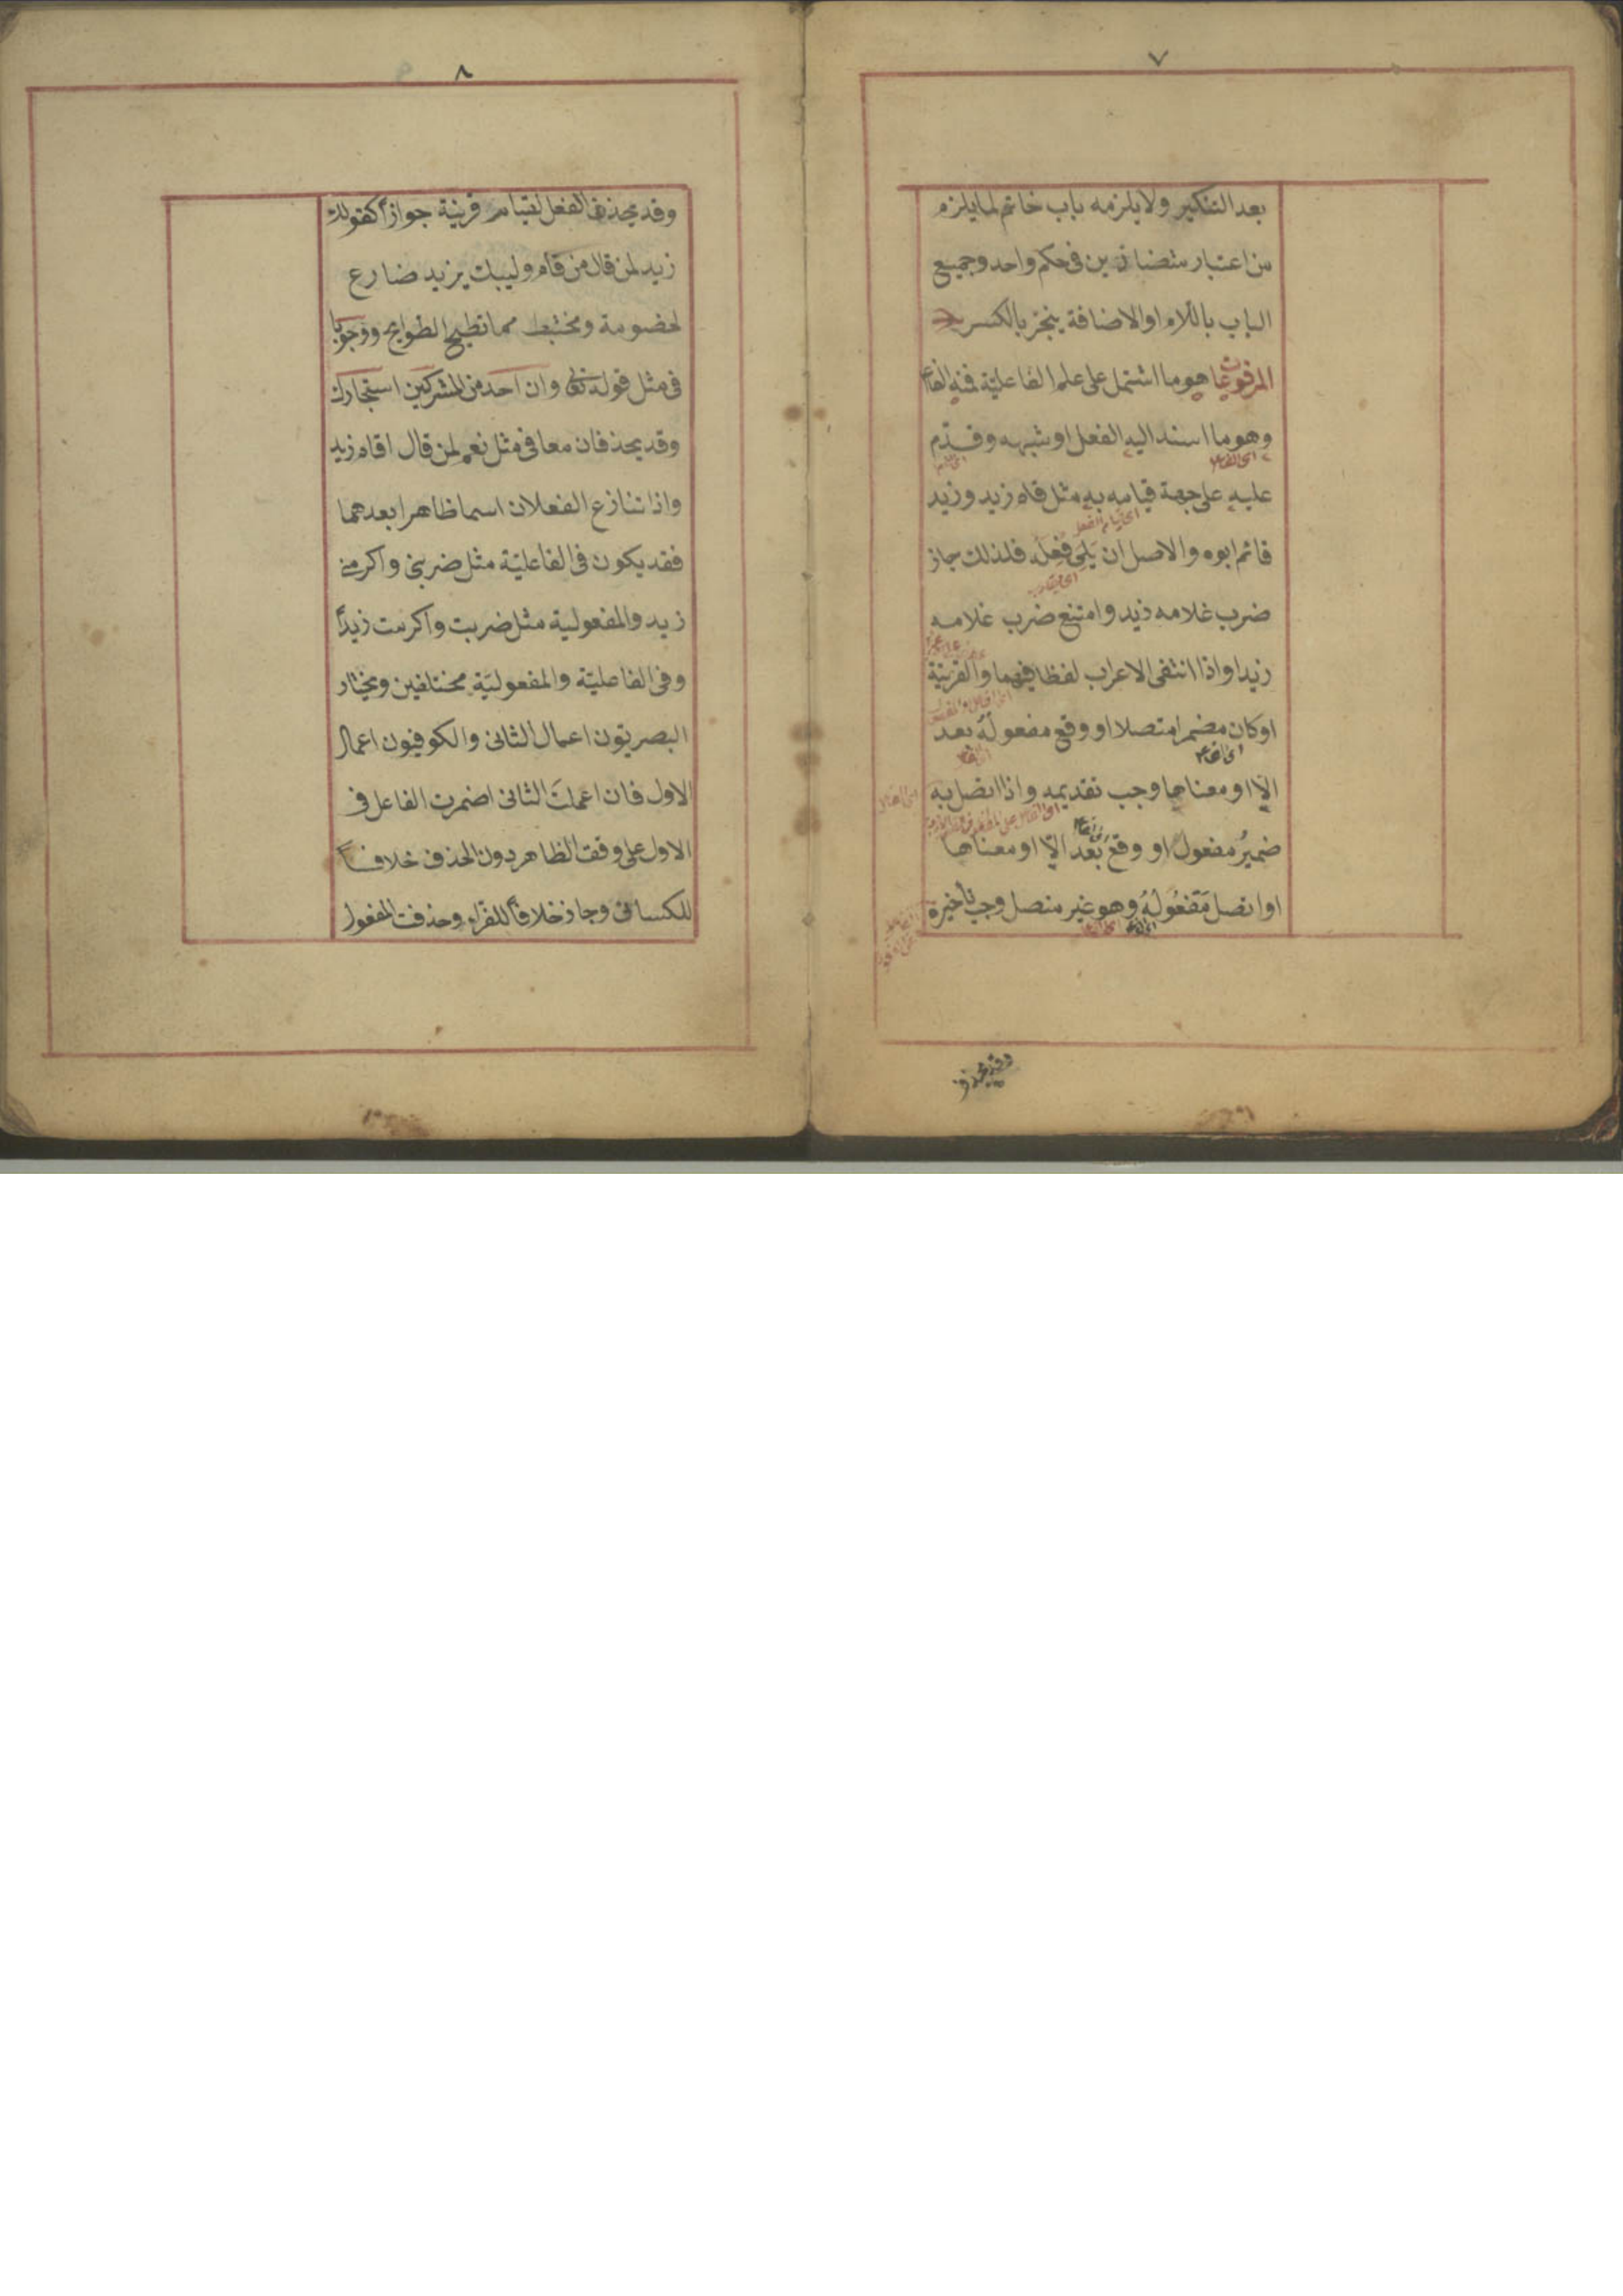 ٧
بعد التنكير ولا يلزمه باب خاتم لما يلزم
من اعتبار متضادين فى حكم واحد وجميع
الباب باللام او الاضافة ينجر بالكسر
المرفوعات هو ما اشتمل على علم الفاعلية فمنه الفاعل
وهو ما اسند اليه الفعل او شبهه وقدم
اى الفاعل
عليه على جهة قيامه به مثل قام زيد وزيد
اى قيام الفعل
قائم ابوه والاصل ان يَلِىَ فِعلَه فلذلك جاز
ضرب غلامه زيد وامتنع ضرب غلامه
زيدا واذا انتفى الاعراب لفظا فيهما والقرينة
او كان مضمرا متصلا او وقع مفعوله بعد
اى الفاعل
الا او معناها وجب تقديمه واذا اتصل به
ضميرُ مفعول او وقع بعد الّا او معناها
او اتصل مَفعُولُهُ وهو غير متصل وجب تاخيره
وقد يحذف
٨
وقد يحذف الفعل لقيام قرينة جوازاً كقولك
زيد لمن قال من قام وليبك يزيد ضارع
لخصومة ومختبط مما تطيح الطوايح ووجوبا
فى مثل قوله تعالى وان احد من المشركين استجارك
وقد يحذفان معا فى مثل نعم لمن قال اقام زيد
واذا تنازع الفعلان اسما ظاهرا بعدهما
فقد يكون فى الفاعليّة مثل ضربنى واكرمنى
زيد والمفعولية مثل ضربت واكرمت زيداً
وفى الفاعليّة والمفعوليّة مختلفين ويختار
البصريّون اعمال الثانى والكوفيون اعمال
الاول فان اعملتَ الثانى اضمرت الفاعل فى
الاول على وفق الظاهر دون الحذف خلافاً
للكسائى وجاز خلافاً للفراء وحذفت المفعول